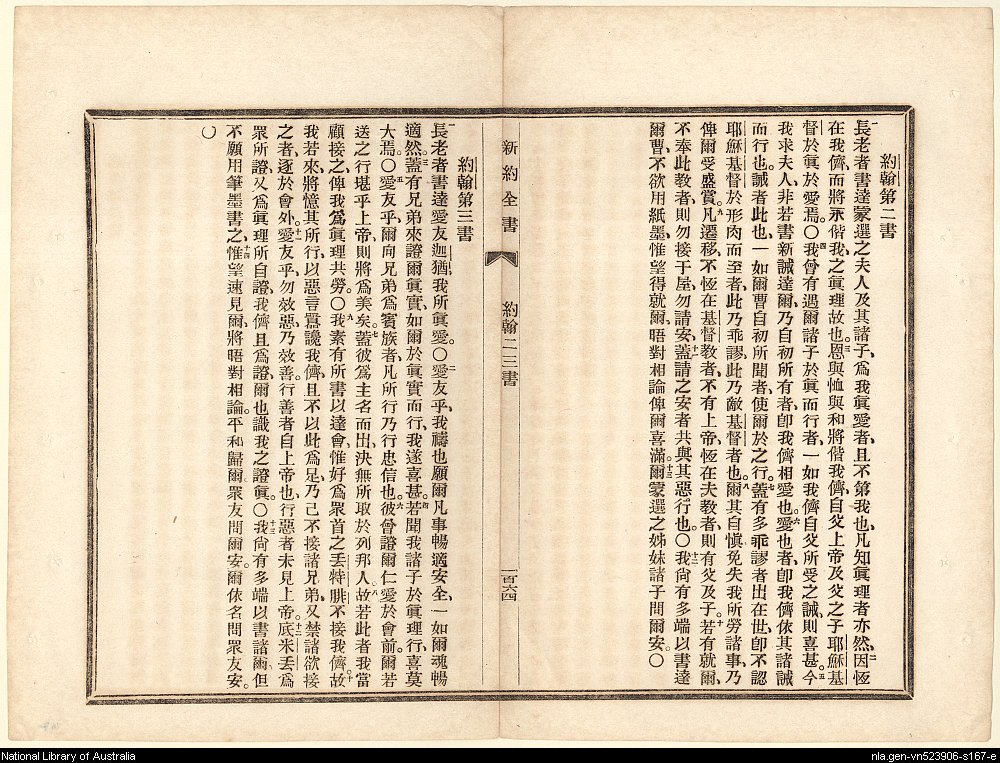 約翰第二書
長老者書達蒙選之夫人及其諸子、爲我眞愛者、且不第我也、凡知眞理者亦然、因恆
在我儕、而將永偕我之眞理故也、恩與恤與和將偕我儕、自父上帝及父之子耶穌基
督於眞於愛焉。〇我曾有遇爾諸子於眞而行者、一如我儕自父所受之誡、則喜甚。今
我求夫人、非若書新誡達爾、乃自初所有者、卽我儕相愛也。愛也者、卽我儕依其諸誡
而行也。誡者此也、一如爾曹自初所聞者、使爾於之行。蓋有多乖謬者出在世、卽不認
耶穌基督於形肉而至者、此乃乖謬、此乃敵基督者也。爾其自愼、免失我所勞諸事、乃
俾爾受盛賞。凡遷移、不恆在基督教者、不有上帝、恆在夫教者、則有父及子。若有就爾、
不奉此教者、則勿接于屋、勿請安、蓋請之安者、共與其惡行也。〇我尙有多端以書達
爾曹、不欲用紙墨、惟望得就爾、晤對相論、俾爾喜滿。爾蒙選之姊妹諸子問爾安。〇
新約全書
約翰二三書
一百六四
約翰第三書
長老者書達愛友迦猶、我所眞愛。〇愛友乎、我禱也、願爾凡事暢適安全、一如爾魂暢
適然。蓋有兄弟來證爾眞實、如爾於眞實而行、我遂喜甚。若聞我諸子於眞理行、喜莫
大焉。〇愛友乎、爾向兄弟爲賓族者、凡所行乃行忠信也。彼曾證爾仁愛於會前。爾若
送之行、堪乎上帝、則將爲美矣。蓋彼爲主名而出、決無所取於列邦人。故若此者、我當
顧接之、俾我爲眞理共勞。〇我素有所書以達會、惟好爲衆首之丟特腓不接我儕、故
我若來、將憶其所行、以惡言詈讒我儕、且不以此爲足、乃己不接諸兄弟、又禁諸欲接
之者、逐於會外。愛友乎、勿效惡、乃效善。行善者自上帝也、行惡者未見上帝。底米丟爲
眾所證、又爲眞理所自證、我儕且爲證、爾也識我之證眞。〇我尙有多端以書諸爾、但
不願用筆墨書之、惟望速見爾、將晤對相論。平和歸爾。眾友問爾安。爾依名問眾友安。
〇
National Library of Australia
nla.gen-vn523906-s167-e